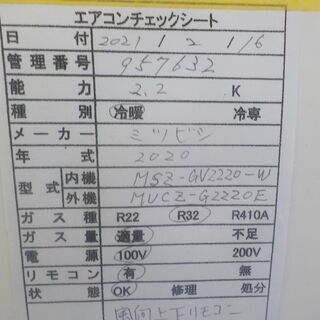 エアコンチェックシート
日 付 2021 1 2 1/6
管理番号 957632
能 力 2.2 K
種 別 冷暖 冷専
メーカー ミツビシ
年 式 2020
型式 内機 MSZ-GV2220-W
外機 MUCZ-G2220E
ガス種 R22 R32 R410A
ガス量 適量 不足
電 源 100V 200V
リモコン 有 無
状 態 OK 修理 処分
風向上下リモコン